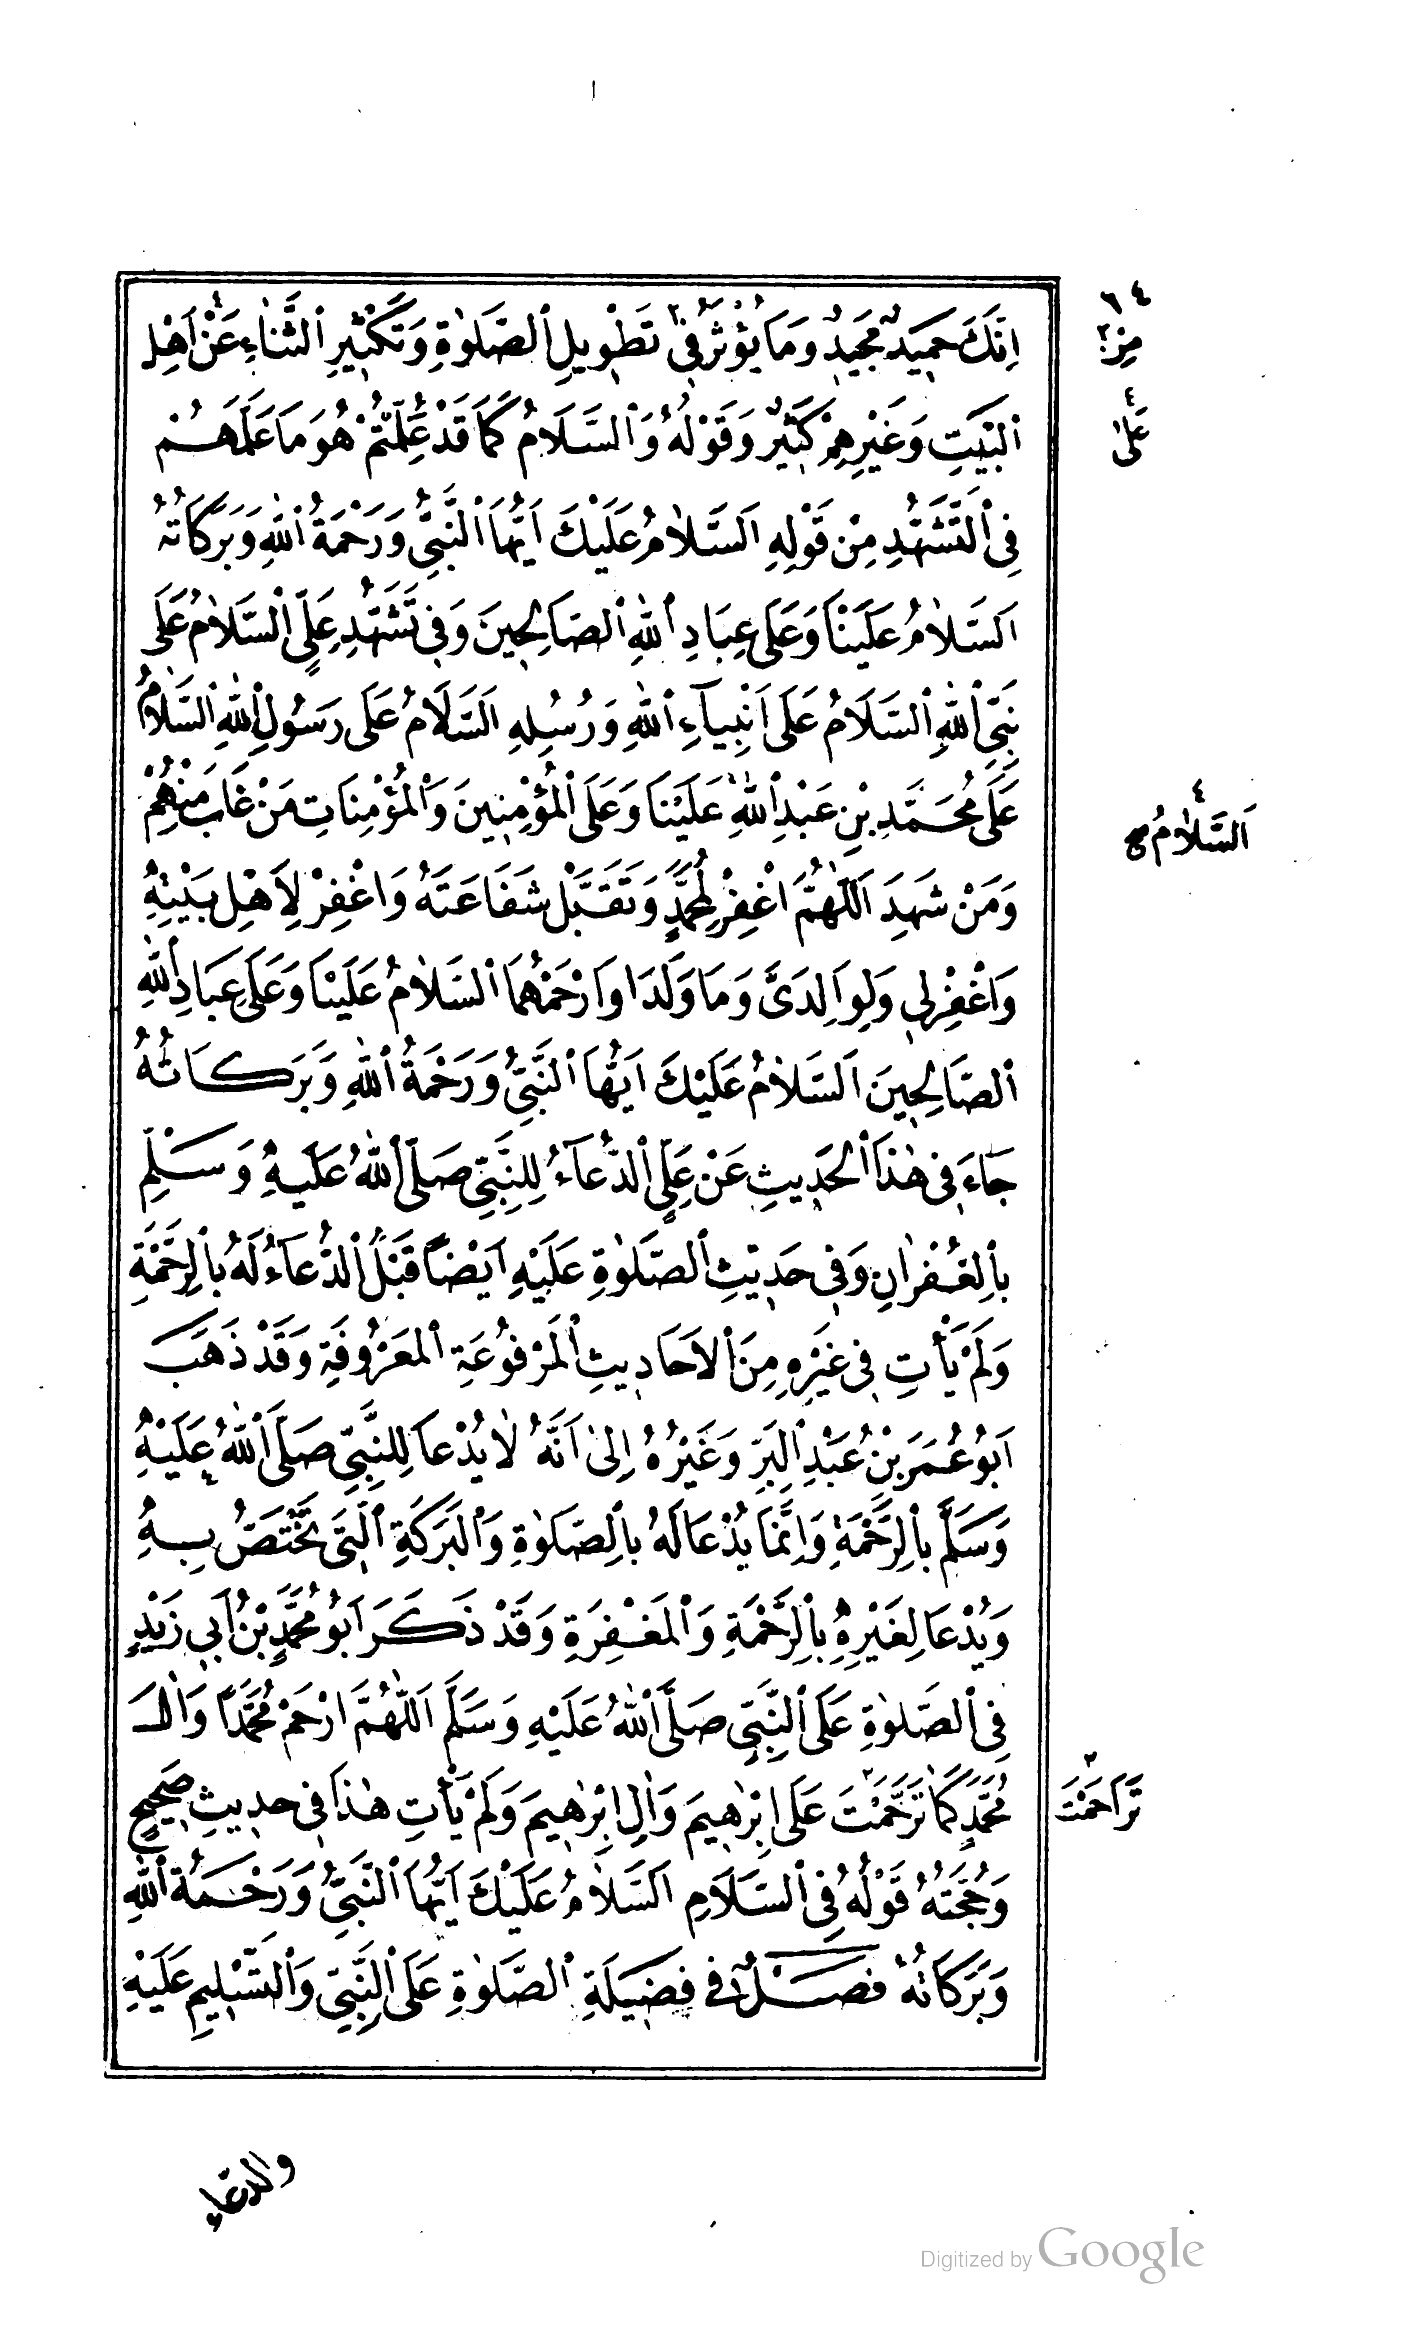 ٦٤
اِنَّكَ حَمِيدٌ مَجِيدٌ وَمَا يُؤْثَرُ فِي تَطْوِيلِ الصَّلٰوةِ وَتَكْثِيرِ الثَّنَاءِ عَنْ اَهْلِ
مِنْ
الْبَيْتِ وَغَيْرِهِمْ كَثِيرٌ وَقَوْلُهُ وَالسَّلَامُ كَمَا قَدْ عُلِّمْتُمْ هُوَ مَا عَلَّمَهُمْ
عَلٰى
فِي التَّشَهُّدِ مِنْ قَوْلِهِ اَلسَّلَامُ عَلَيْكَ اَيُّهَا النَّبِيُّ وَرَحْمَةُ اللّٰهِ وَبَرَكَاتُهُ
اَلسَّلَامُ عَلَيْنَا وَعَلَى عِبَادِ اللّٰهِ الصَّالِحِينَ وَفِي تَشَهُّدِ عَلِيٍّ السَّلَامُ عَلَى
نَبِيِّ اللّٰهِ السَّلَامُ عَلَى اَنْبِيَآءِ اللّٰهِ وَرُسُلِهِ اَلسَّلَامُ عَلَى رَسُولِ اللّٰهِ السَّلَامُ
عَلَى مُحَمَّدِ بْنِ عَبْدِ اللّٰهِ عَلَيْنَا وَعَلَى الْمُؤْمِنِينَ وَالْمُؤْمِنَاتِ مَنْ غَابَ مِنْهُمْ
اَلسَّلَامُ صح
وَمَنْ شَهِدَ اَللّٰهُمَّ اغْفِرْ لِمُحَمَّدٍ وَتَقَبَّلْ شَفَاعَتَهُ وَاغْفِرْ لِاَهْلِ بَيْتِهِ
وَاغْفِرْ لِي وَلِوَالِدَيَّ وَمَا وَلَدَا وَارْحَمْهُمَا السَّلَامُ عَلَيْنَا وَعَلَى عِبَادِ اللّٰهِ
الصَّالِحِينَ اَلسَّلَامُ عَلَيْكَ اَيُّهَا النَّبِيُّ وَرَحْمَةُ اللّٰهِ وَبَرَكَاتُهُ
جَاءَ فِي هٰذَا الْحَدِيثِ عَنْ عَلِيٍّ الدُّعَآءُ لِلنَّبِيِّ صَلَّى اللّٰهُ عَلَيْهِ وَسَلَّمَ
بِالْغُفْرَانِ وَفِي حَدِيثِ الصَّلٰوةِ عَلَيْهِ اَيْضًا قَبْلُ الدُّعَآءُ لَهُ بِالرَّحْمَةِ
وَلَمْ يَأْتِ فِي غَيْرِهِ مِنَ الْاَحَادِيثِ الْمَرْفُوعَةِ الْمَعْرُوفَةِ وَقَدْ ذَهَبَ
اَبُو عُمَرَ بْنُ عَبْدِ الْبَرِّ وَغَيْرُهُ اِلٰى اَنَّهُ لَا يُدْعَا لِلنَّبِيِّ صَلَّى اللّٰهُ عَلَيْهِ
وَسَلَّمَ بِالرَّحْمَةِ وَاِنَّمَا يُدْعَا لَهُ بِالصَّلٰوةِ وَالْبَرَكَةِ الَّتِي تَخْتَصُّ بِهِ
وَيُدْعَا لِغَيْرِهِ بِالرَّحْمَةِ وَالْمَغْفِرَةِ وَقَدْ ذَكَرَ اَبُو مُحَمَّدِ بْنُ اَبِي زَيْدٍ
فِي الصَّلٰوةِ عَلَى النَّبِيِّ صَلَّى اللّٰهُ عَلَيْهِ وَسَلَّمَ اَللّٰهُمَّ ارْحَمْ مُحَمَّدًا وَاٰلَ
مُحَمَّدٍ كَمَا تَرَحَّمْتَ عَلَى اِبْرٰهِيمَ وَاٰلِ اِبْرٰهِيمَ وَلَمْ يَأْتِ هٰذَا فِي حَدِيثٍ صَحِيحٍ
تَرَاحَمْتَ
وَحُجَّتُهُ قَوْلُهُ فِي السَّلَامِ اَلسَّلَامُ عَلَيْكَ اَيُّهَا النَّبِيُّ وَرَحْمَةُ اللّٰهِ
وَبَرَكَاتُهُ فَصْلٌ فِي فَضِيلَةِ الصَّلٰوةِ عَلَى النَّبِيِّ وَالتَّسْلِيمِ عَلَيْهِ
والدعاء
Digitized by Google